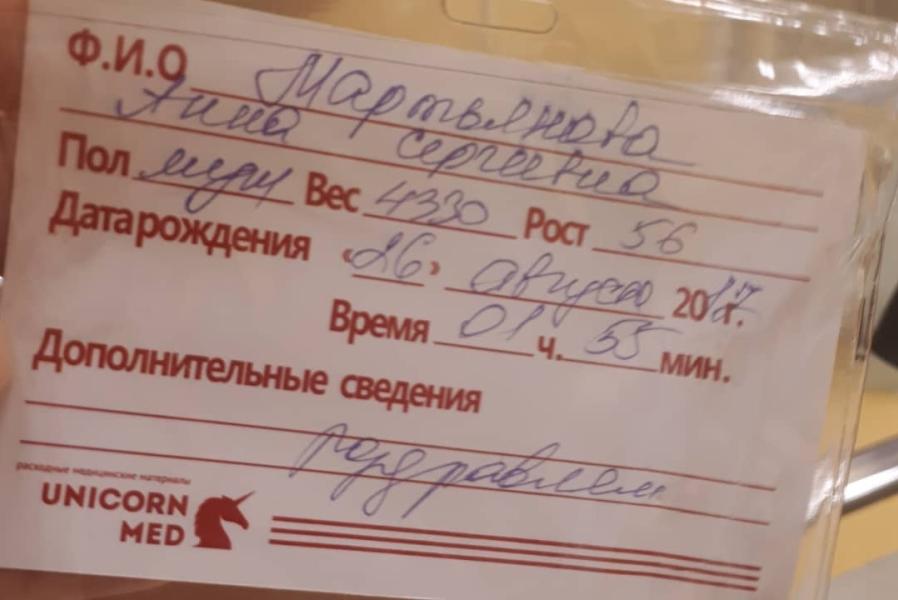 Ф.И.О Мартьянова
Анна Сергеевна
Пол муж Вес 4330 Рост 56
Дата рождения «26» август 2017г.
Время 01 ч. 55 мин.
Дополнительные сведения
поздравляем
расходные медицинские материалы
UNICORN
MED